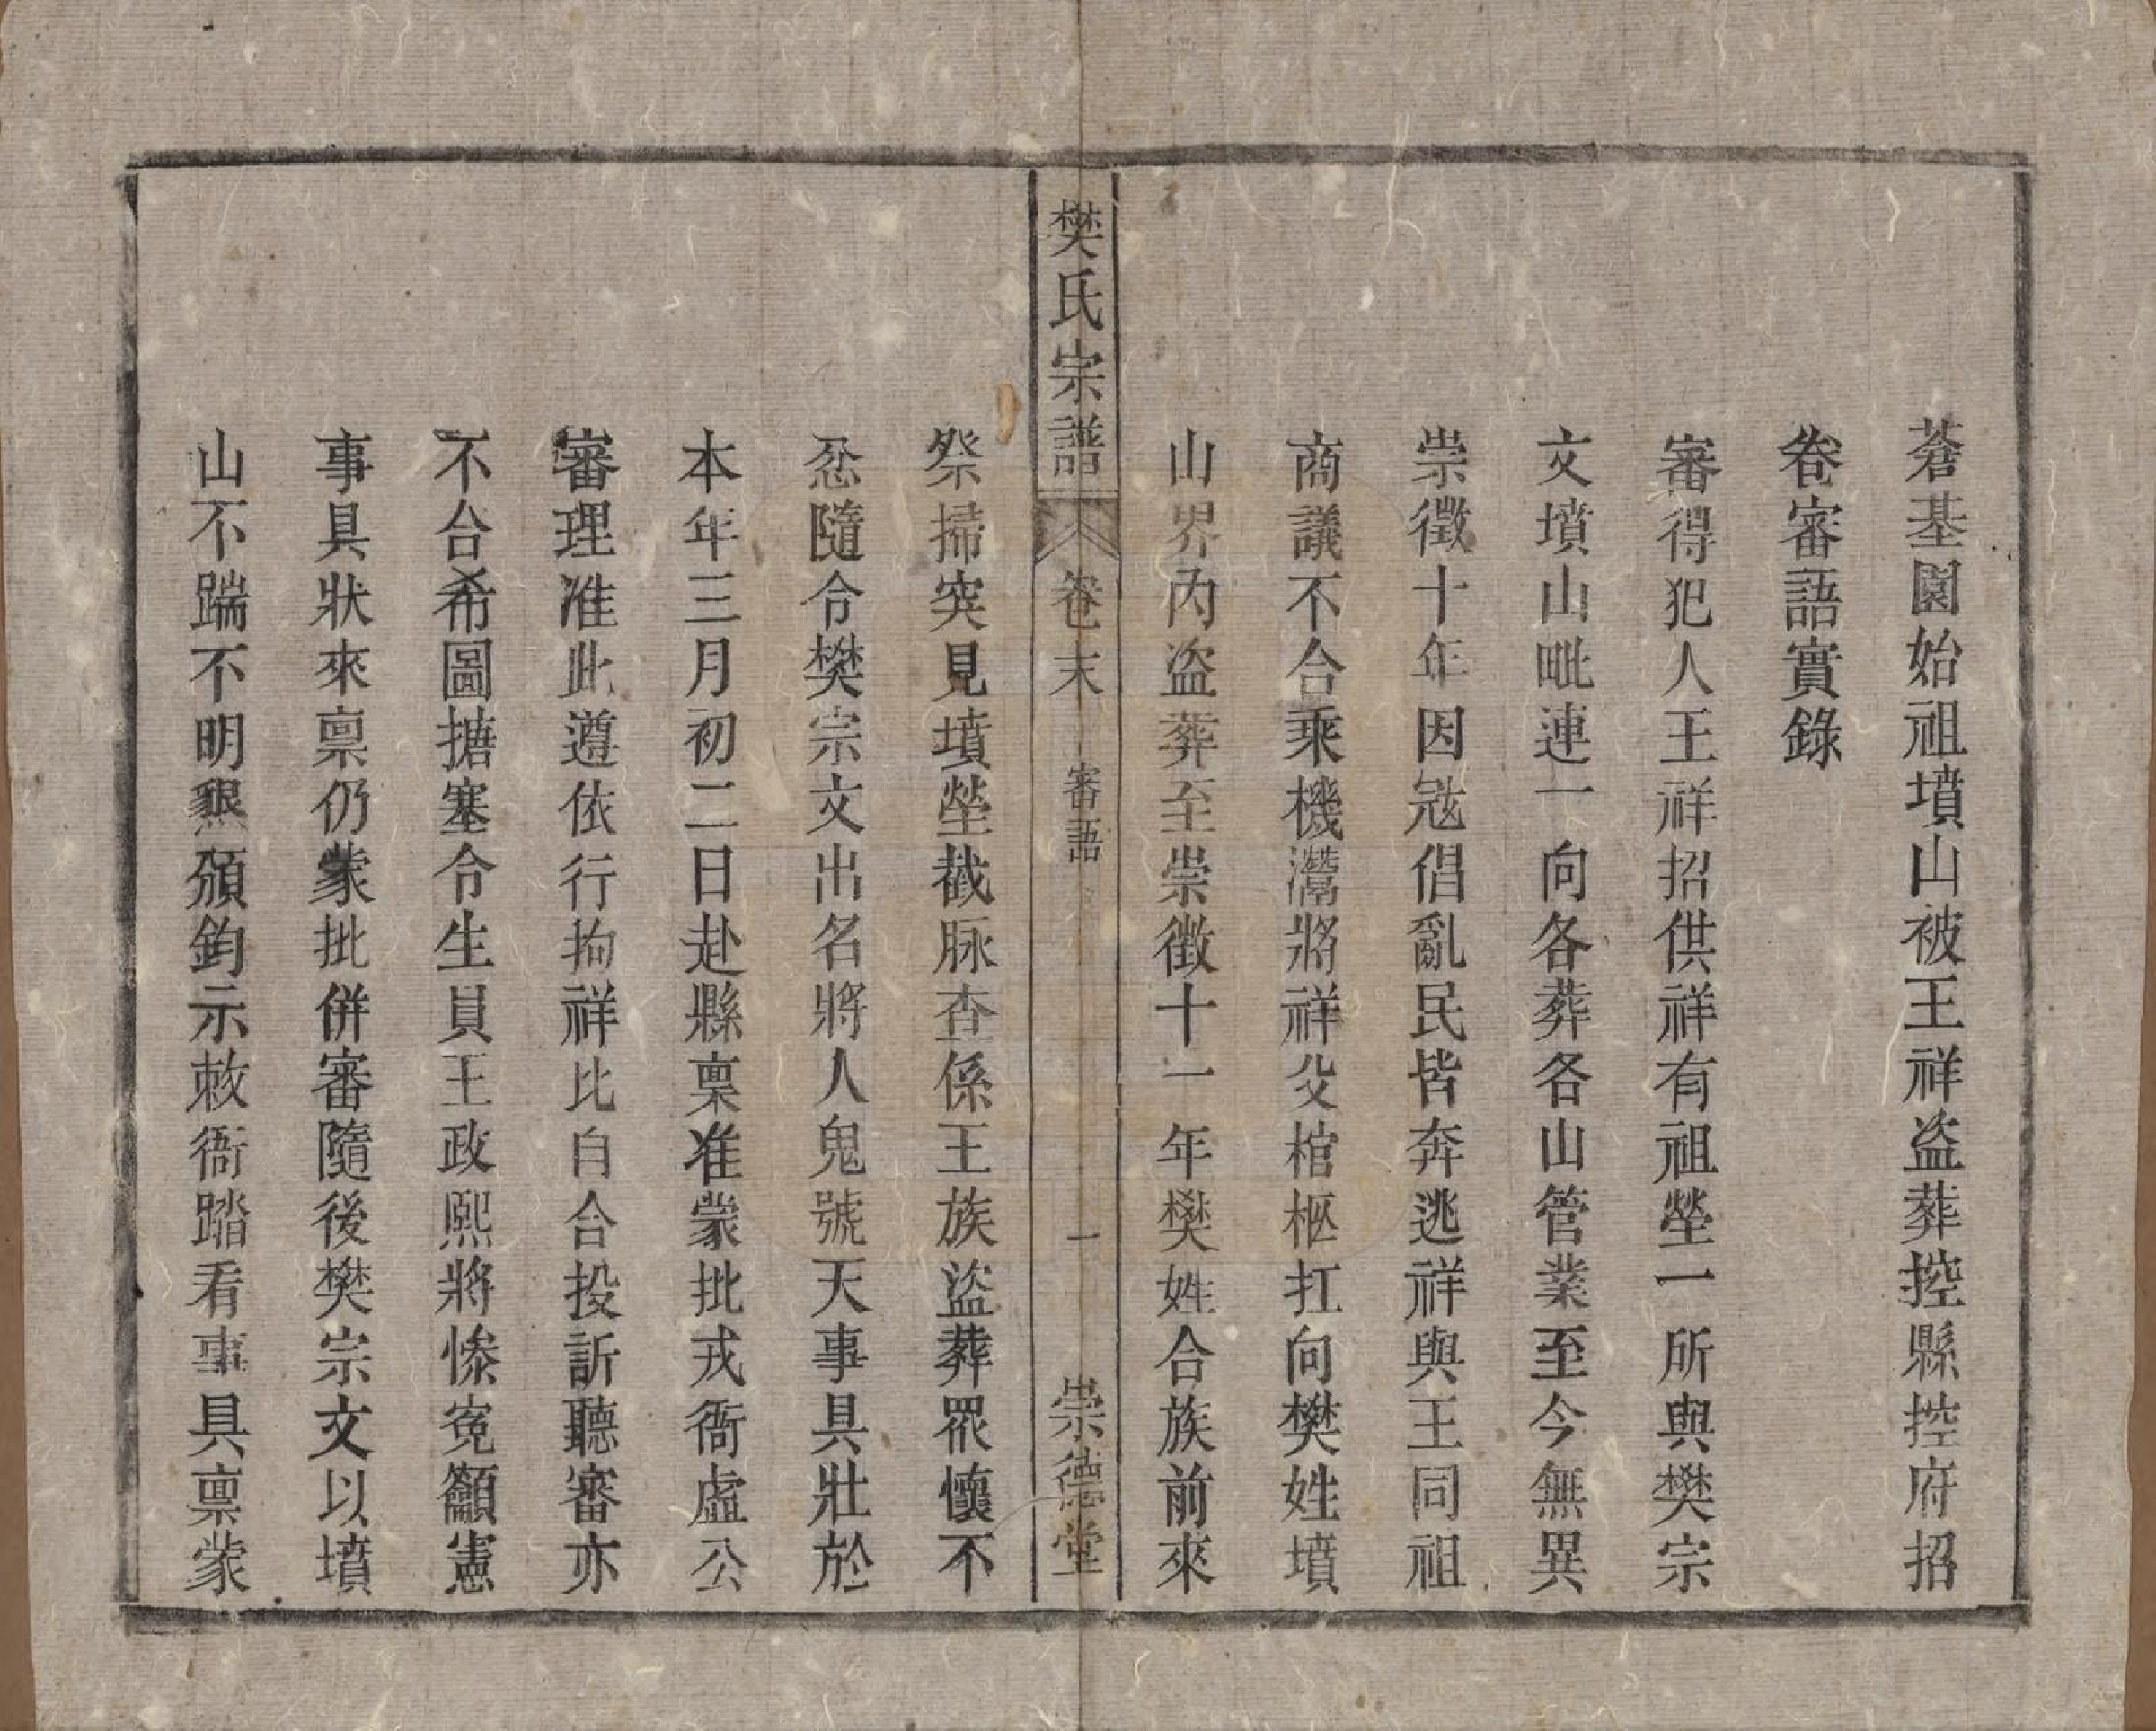 蒼基園始祖墳山被王祥盗葬控縣控府招
卷審語實錄
審得犯人王祥招供祥有祖塋一所與樊宗
文墳山毗連一向各葬各山管業至今無異
崇徵十年因冦倡亂民皆奔逃祥與王同祖
商議不合乘機灊將祥父棺柩扛向樊姓墳
山界內盗葬至崇徵十一年樊姓合族前來
樊氏宗譜 卷末 審語 一 崇德堂
祭掃突見墳塋截脉查係王族盜葬眾懷不
忿隨令樊宗文出名將人鬼號天事具壯於
本年三月初二日赴縣稟准蒙批戎衙虛公
審理准此遵依行拘祥比自合投訴聽審亦
不合希圖搪塞令生員王政熙將慘寃籲憲
事具狀來稟仍蒙批併審隨後樊宗文以墳
山不踹不明懇頒鈞示敕衙踏看事具稟蒙